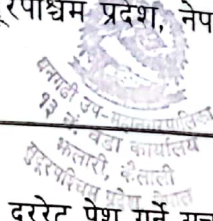 पश्चिम प्रदेश, नेप
धनगढी उप-महानगरपालिका
१३ नं. वडा कार्यालय
भासारी, कैलाली
सुदूरपश्चिम प्रदेश, नेपाल
दररेट पेश गर्ने